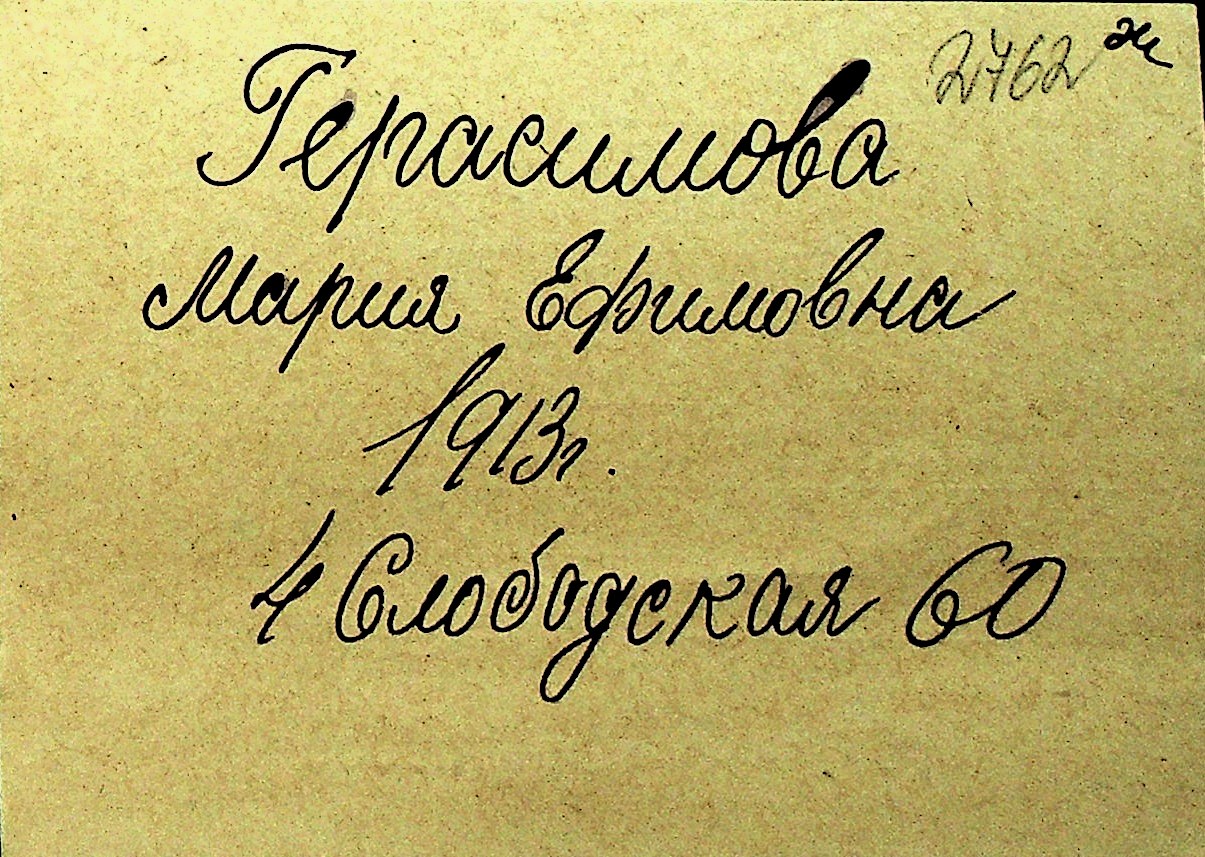 2762 ж
Герасимова
Мария Ефимовна
1913г.
4 Слободская 60